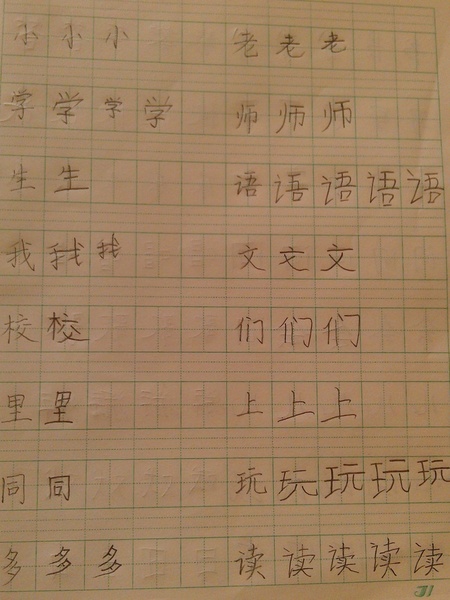 小 小 小 老 老 老
学 学 学 学 师 师 师
生 生 语 语 语 语 语
我 我 我 文 文 文
校 校 们 们 们
里 里 上 上 上
同 同 玩 玩 玩 玩 玩
多 多 多 读 读 读 读 读
31